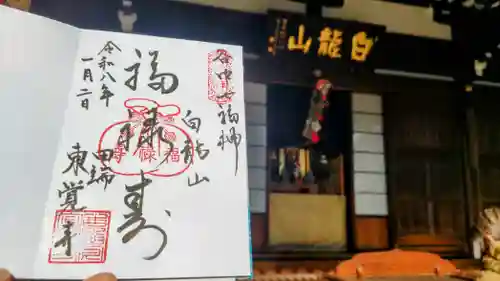 谷中七福神
白龍山
福禄寿
田端
東覚寺
令和八年
一月二日
山龍白